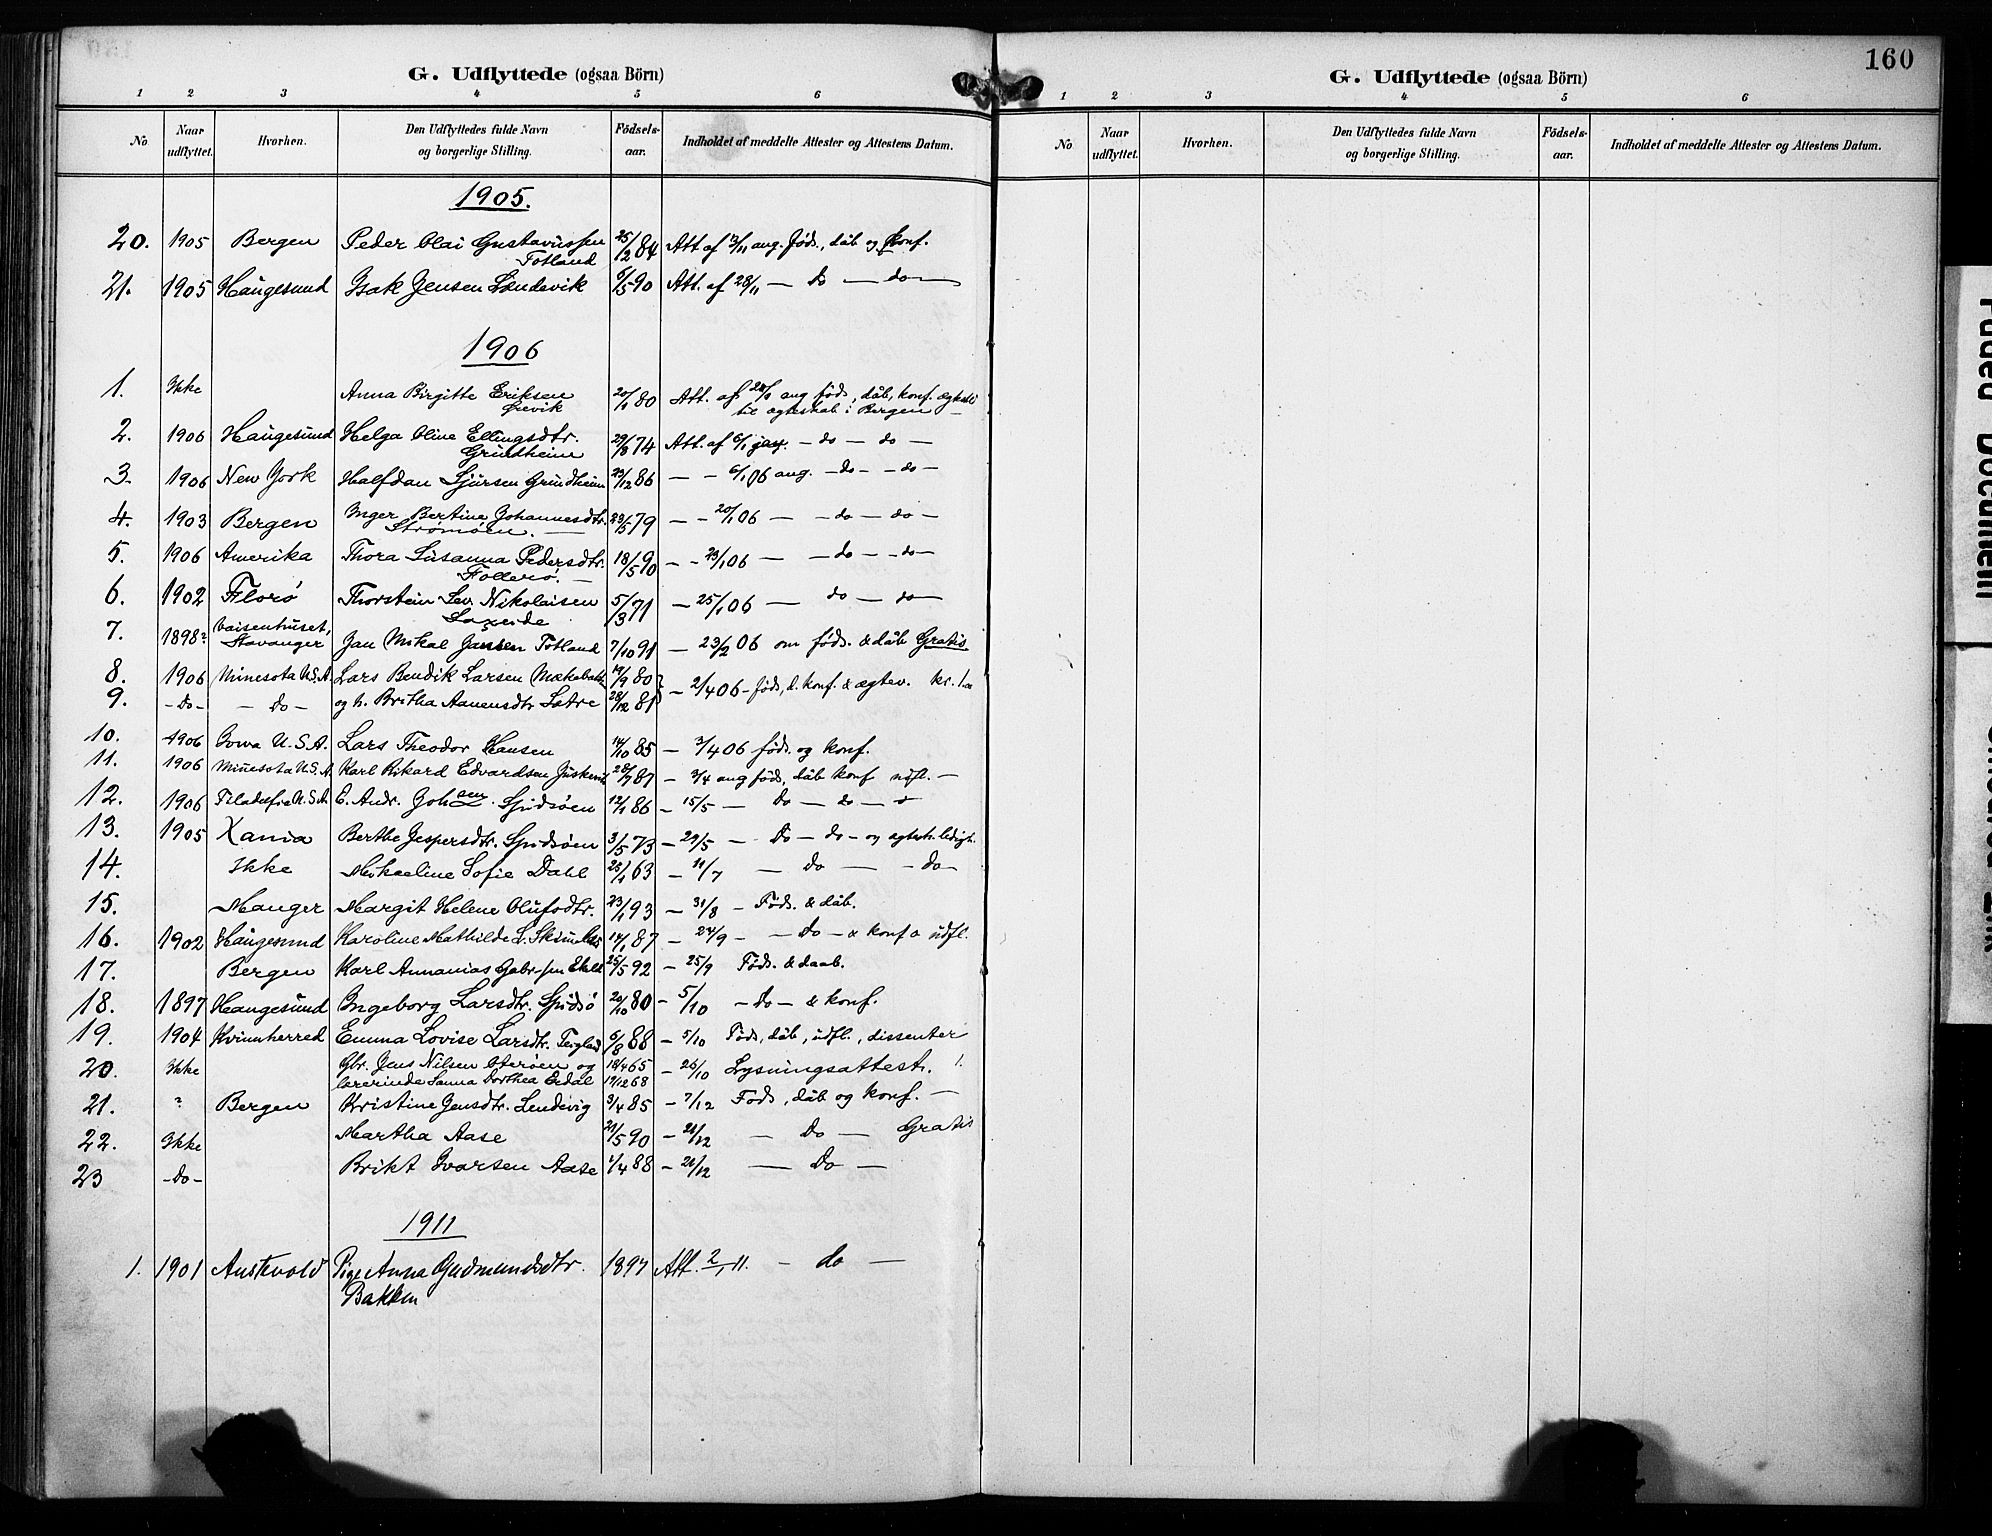 G. Udflyttede (ogsaa Börn)
1 2 3 4 5 6
No Naar udflyttet. Hvorhen. Den Udflyttedes fulde Navn og borgerlige Stilling. Födsels-aar. Indholdet af meddelte Attester og Attestens Datum.
1905.
20. 1905 Bergen Peder Olai Gustavussen 25/2 84 Att af 3/11 ang. föds., dåb og konf.
Totland
21. 1905 Haugesund Isak Jensen Lændevik 6/5 90 Att. af 28/11 — Do — do —
1906
1. Ikke Anna Birgitte Eriksen 20/1 80 Att. af ang föds, dåb, konf.
til ægteskab i Bergen —
2. 1906 Haugesund Helga Oline Ellingsdtr. 29/8 74 Att. af 6/1 — do — do —
Grindheim
3. 1906 New York Halfdan Sjursen Grindheim 23/12 86 — - 6/1 06 ang. — do — - do —
4. 1903 Bergen Inger Bertine Johannesdtr. 23/5 79 — - 20/1 06 — — do — do —
Strømøen. —
5. 1906 Amerika Thora Susanna Pedersdtr. 18/5 90 — - 23/1 06 — — do — - do —
6. 1902 Florö Thorstein Sev. Nikolaisen 5/3 71 — 25/1 06 — do — do —
7. 1898? Vaisenhuset, Stavanger Jan Mikal Jansen Totland 7/10 91 — 23/2 06 om föds. & dåb Gratis
8. 1906 Minesota U.S.A. Lars Bendik Larsen 19/9 80
— 2/4 06 — föds, d. konf. & ægtev. kr. 1.
9. - Do - — Do — og h. Britha Aanensdtr Sætre 28/12 81
10. 1906 Iowa U.S.A. Lars Theodor Hansen 14/10 85 — 3/4 06 föds. og konf.
11. 1906 Minesota U.S.A. Karl Rikard Edvardsen 28/7 87 — 3/4 ang föds, dåb konf udfl. —
12. 1906 Filadelfia U.S.A. E. Andr. Johsen. Spidsöen 12/1 86 — 15/5 — Do — do —
13. 1905 Xania Berthe Jespersdtr. Spidsöen 3/5 73 — 29/5 — Do — do — og
14. Ikke Mikaeline Sofie Dahl 25/1 63 — 11/7 — Do — - Do —
15. Manger Margit Helene Olufsdtr. 23/1 93 — 31/8 — Föds. & dåb.
16. 1902 Haugesund Karoline Mathilde L. 14/1 87 — 24/9 — — Do — & konf o udfl.
17. Bergen Karl Annanias 25/5 92 — 25/9 Föds. & daab.
18. 1897 Haugesund Ingeborg Larsdtr. Spidsö 20/10 80 — 5/10 — Do — & konf.
19. 1904 Kvinnherred Emma Lovise Larsdtr. 6/8 88 — 5/10 Föds, dåb, udfl., dissenter
20. Ikke Gbr. Jens Nilsen Oteröen og 18/4 65 — 26/10 Lysningsattest. 1.
lærerinde Sanna Dorthea Eidal 19/12 68
21. ? Bergen Kristine Jensdtr. Lendevig 3/4 85 — 7/12 Föds, dåb og konf. —
22. Ikke Martha Aase 21/5 90 — 21/12 — Do — Gratis
23 - Do - Brikt Ivarsen Aase 1/4 88 — 21/12 — Do —
1911
1. 1901 Austevold Pige Anna Gudmundsdtr. 1897 Att. 2/1 11. — do —
Bakken
160
G. Udflyttede (ogsaa Börn)
1 2 3 4 5 6
No Naar udflyttet. Hvorhen. Den Udflyttedes fulde Navn og borgerlige Stilling. Födsels-aar. Indholdet af meddelte Attester og Attestens Datum.